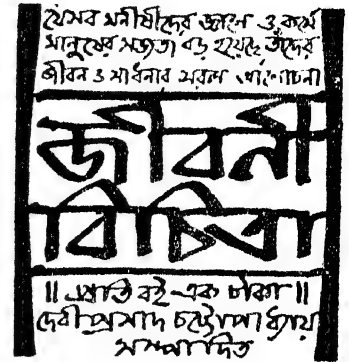 যেসব মনীষীদের জ্ঞানে ও কর্মে
মানুষের সভ্যতা বড় হয়েছে তাঁদের
জীবন ও সাধনার সরল আলোচনা
জীবনী
বিচিত্রা
॥ প্রতি বই এক টাকা ॥
দেবীপ্রসাদ চট্টোপাধ্যায়
সম্পাদিত